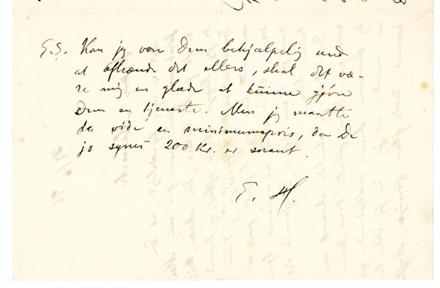 E.S. Kan jeg være Dem behjælpelig med
at afhænde det ellers, skal det væ-
re mig en glæde at kunne gjøre
Dem en tjeneste. Men jeg maatte
da vide en minimumspris, da De
jo synes 200 Kr. er
E. H.